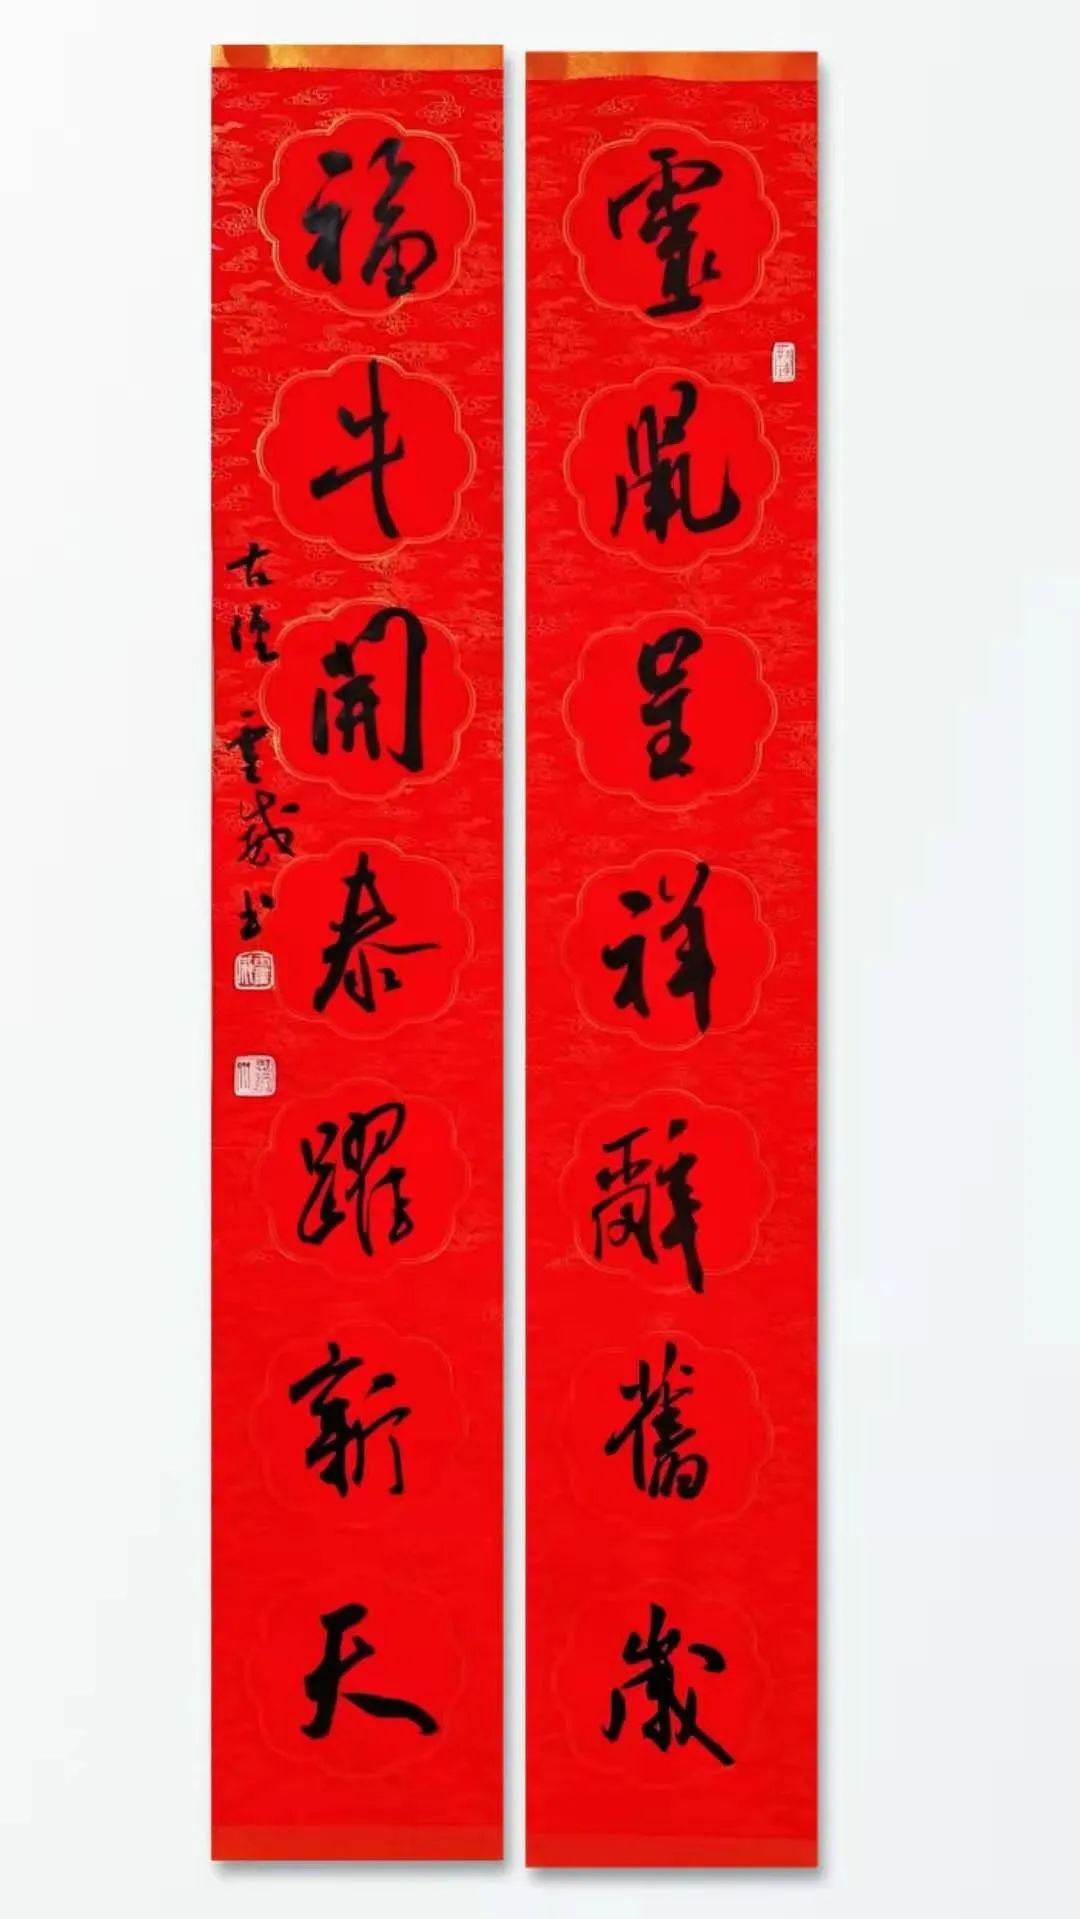 靈鼠呈祥辭舊歲
福牛開泰躍新天